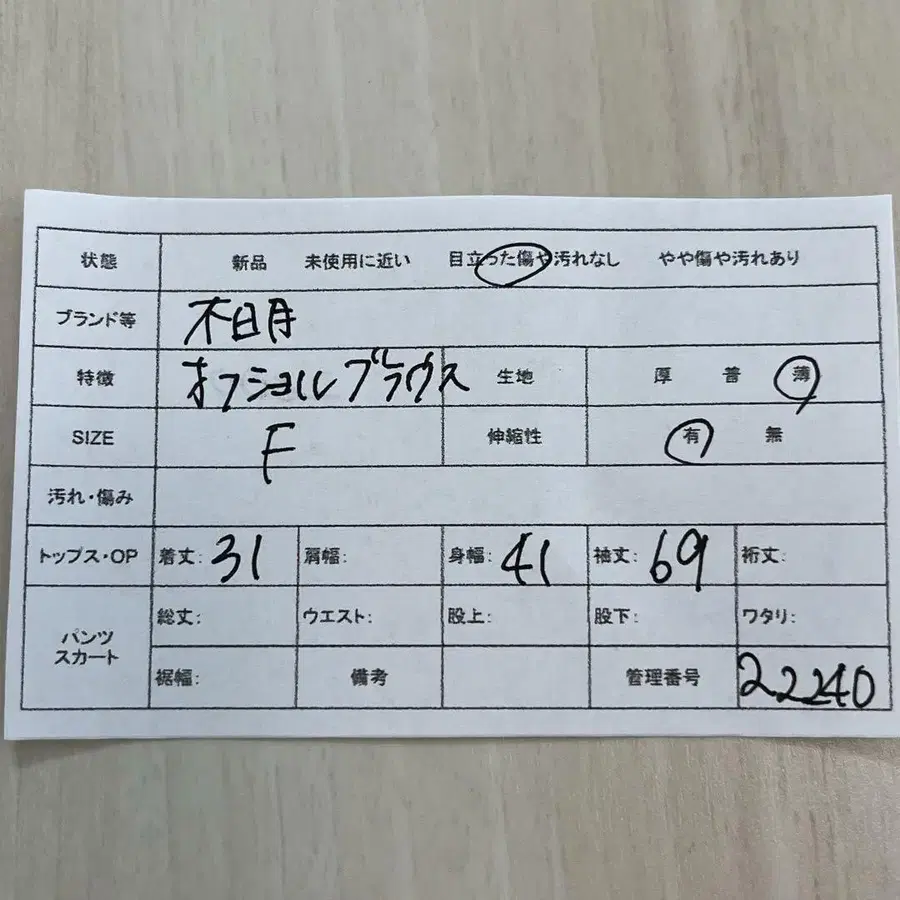 状態 新品 未使用に近い 目立った傷や汚れなし やや傷や汚れあり
ブランド等 木日月
特徴 オフショルブラウス 生地 厚 普 薄
SIZE F 伸縮性 有 無
汚れ・傷み
トップス・OP 着丈: 31 肩幅: 身幅: 41 袖丈: 69 裄丈:
パンツ
スカート
総丈: ウエスト: 股上: 股下: ワタリ:
裾幅: 備考 管理番号 22240